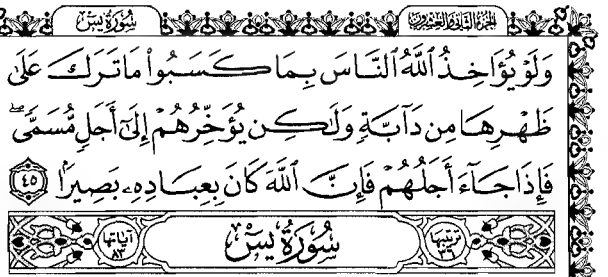 الجزء الثاني والعشرون سُورَةُ يسٓ
وَلَوْ يُؤَاخِذُ ٱللَّهُ ٱلنَّاسَ بِمَا كَسَبُوا۟ مَا تَرَكَ عَلَىٰ
ظَهْرِهَا مِن دَآبَّةٍ وَلَٰكِن يُؤَخِّرُهُمْ إِلَىٰٓ أَجَلٍ مُّسَمًّى ۖ
فَإِذَا جَآءَ أَجَلُهُمْ فَإِنَّ ٱللَّهَ كَانَ بِعِبَادِهِۦ بَصِيرًۢا ٤٥
ترتيبها ٣٦ سُورَةُ يسٓ آياتها ٨٣